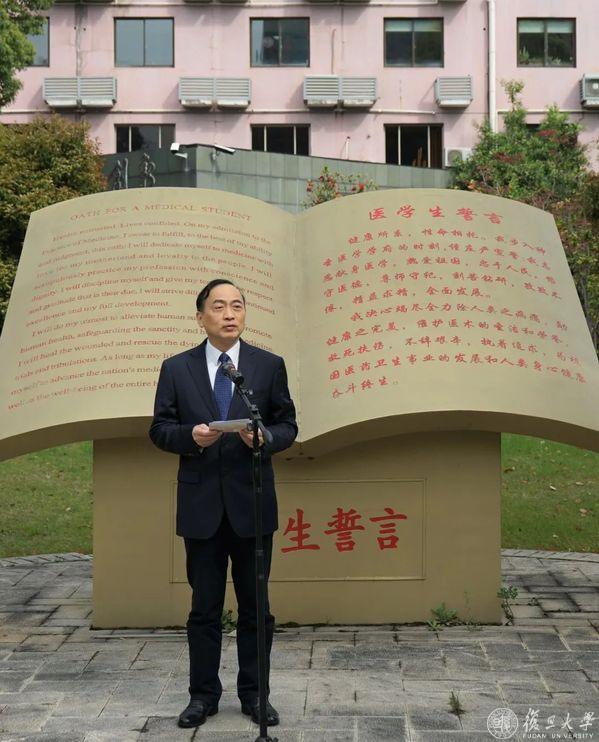 復旦大學
FUDAN UNIVERSITY
OATH FOR A MEDICAL STUDENT
Health entrusted. Lives confided. On my admission to the
Practice of Medicine, I swear to fulfill, to the best of my ability
and judgment, this oath: I will dedicate myself to medicine with
love for my motherland and loyalty to the people. I will
scrupulously practice my profession with conscience and
dignity. I will discipline myself and give my respect
and gratitude that is their due. I will strive
excellence and my full development.
I will do my utmost to alleviate human promote
human health, safeguarding the sanctity and
I will heal the wounded and rescue the
trials and tribulations. As long as my
myself to advance the nation's
well as the well-being of the entire
医学生誓言
健康所系，性命相托。我步入神
圣医学学府的时刻，谨庄严宣誓：我志
愿献身医学，热爱祖国，忠于人民，恪
守医德，尊师守纪，刻苦钻研，孜孜不
倦，精益求精，全面发展。
我决心竭尽全力除人类之病痛，助
健康之完美，维护医术的圣洁和荣誉。
救死扶伤，不辞艰辛，执着追求，为祖
国医药卫生事业的发展和人类身心健康
奋斗终生。
生誓言
復旦大學
FUDAN UNIVERSITY